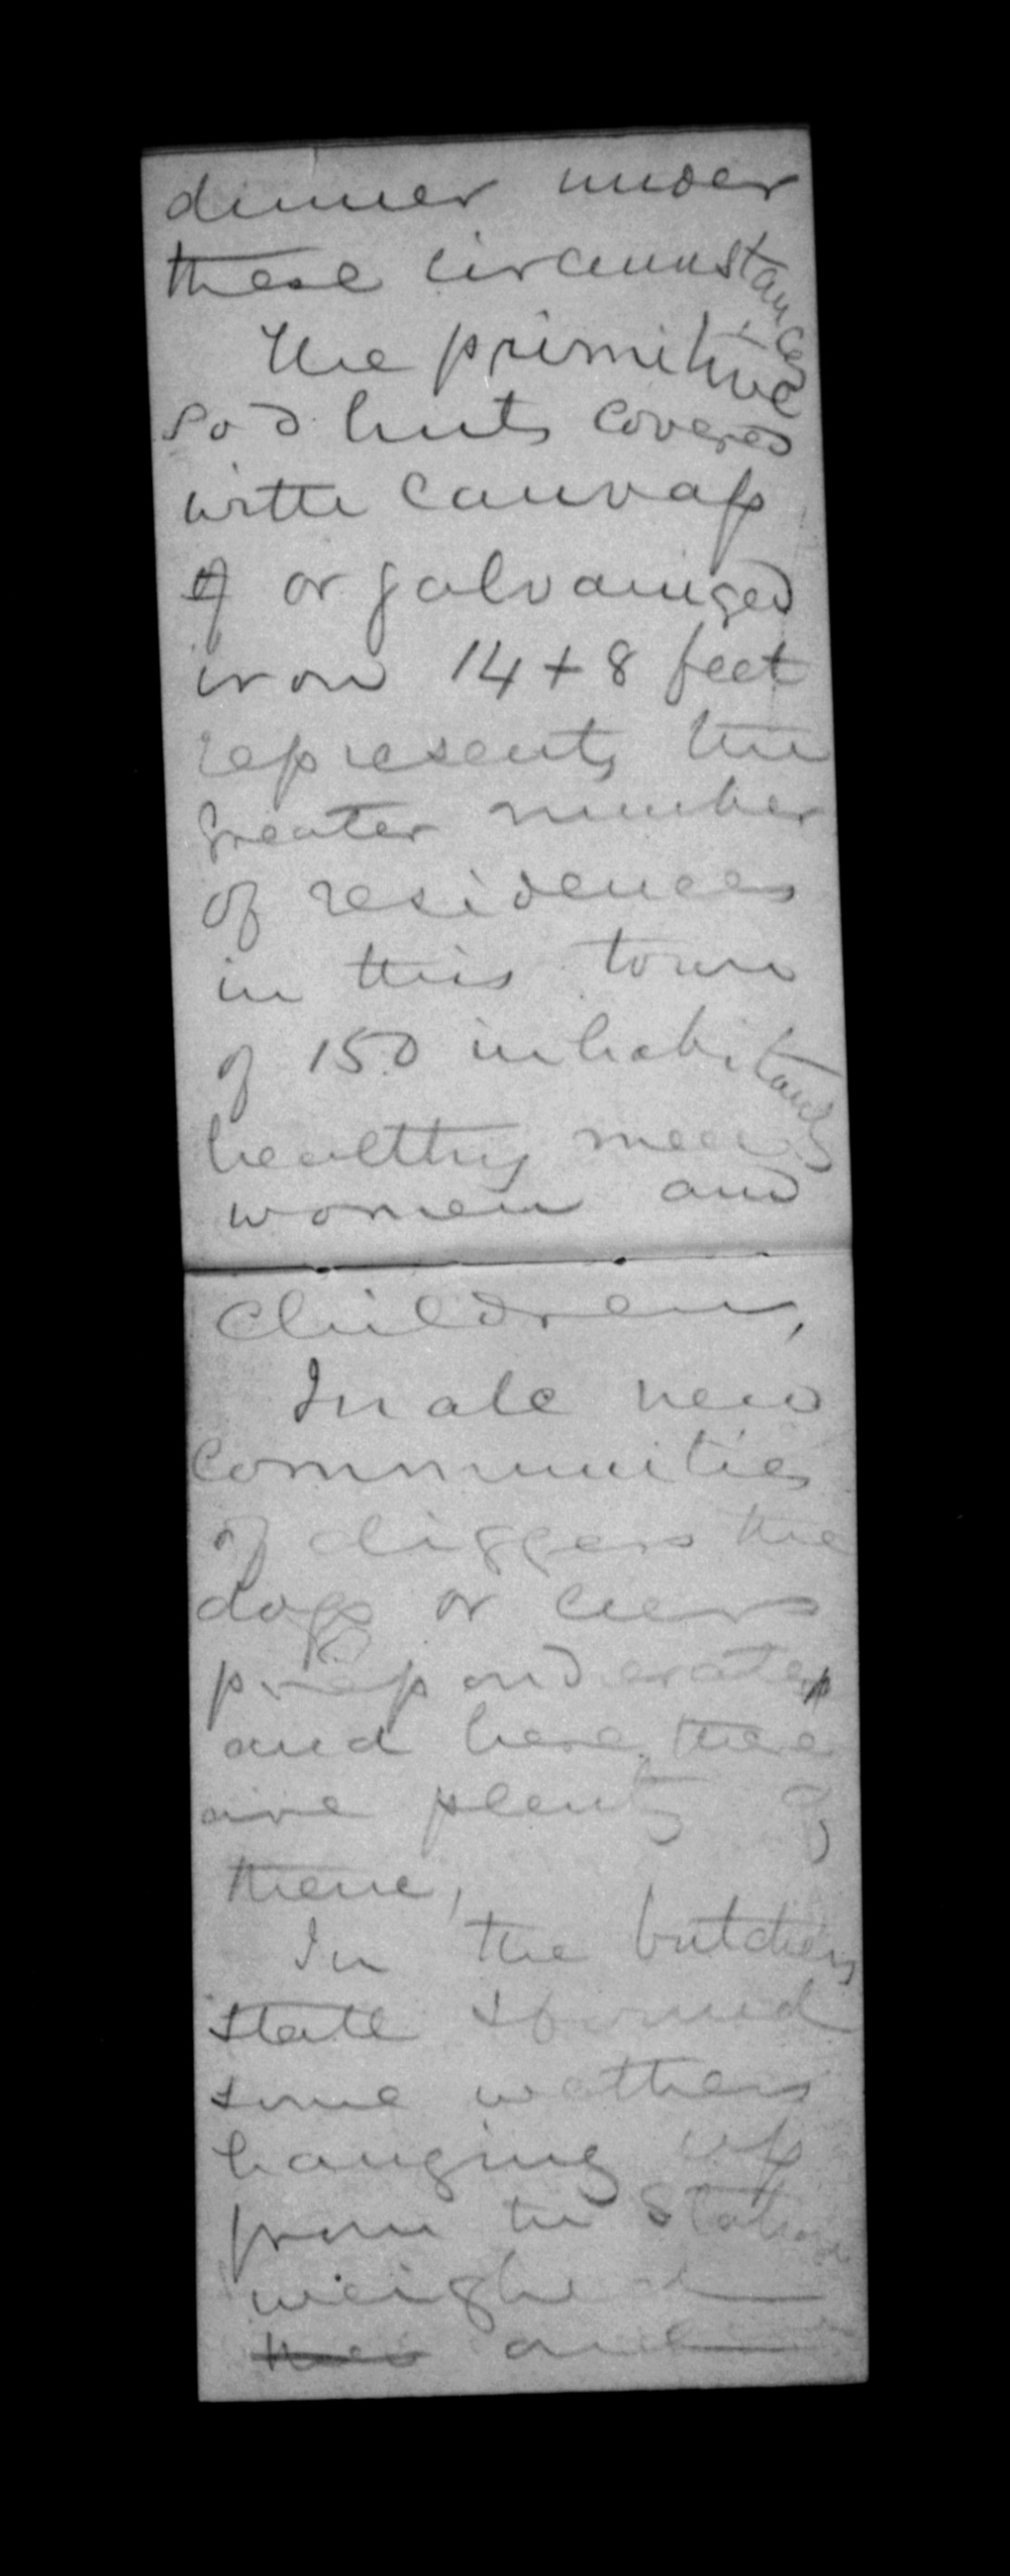 dinner under
these circumstances
The primitive
sod huts covered
with canvass
of or galvanized
iron 14 + 8 feet
represents the
greater number
of residences
in this town
of 150 inhabitants
healthy men
women and
children,
In all new
communities
of diggers the
dogs or curs
preponderate
and here there
are plenty of
them,
In the butchers
stall I found
some wethers
hanging up
from the station
weighed
and